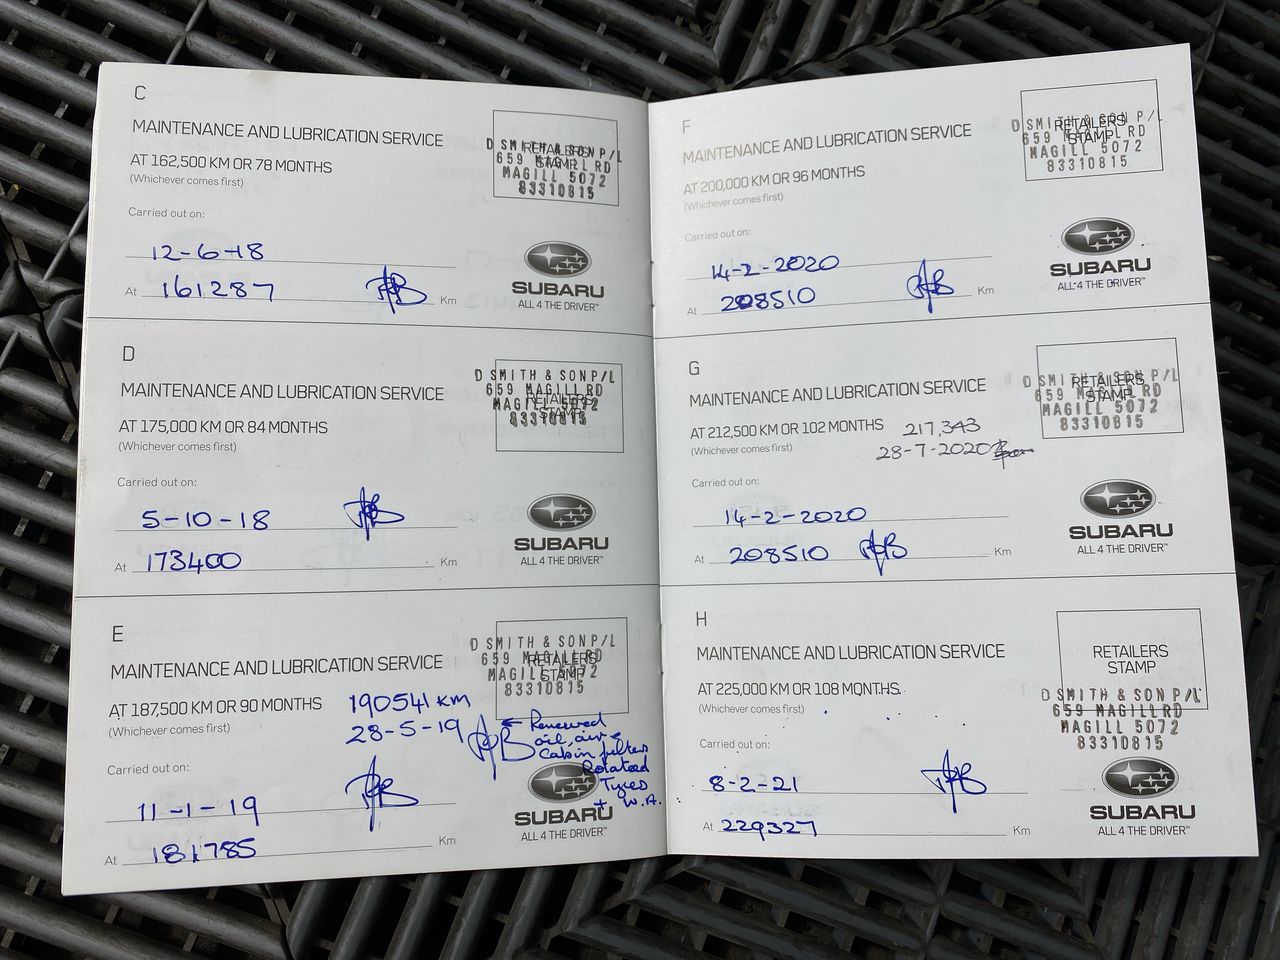 C
MAINTENANCE AND LUBRICATION SERVICE
AT 162,500 KM OR 78 MONTHS
(Whichever comes first)
RETAILERS
STAMP
D SMITH & SON P/L
659 MAGILL RD
MAGILL 5072
83310815
Carried out on:
12-6-18
At 161287 Km
SUBARU
ALL 4 THE DRIVER™
D
MAINTENANCE AND LUBRICATION SERVICE
AT 175,000 KM OR 84 MONTHS
(Whichever comes first)
RETAILERS
STAMP
D SMITH & SON P/L
659 MAGILL RD
MAGILL 5072
83310815
Carried out on:
5-10-18
At 173400 Km
SUBARU
ALL 4 THE DRIVER™
E
MAINTENANCE AND LUBRICATION SERVICE
AT 187,500 KM OR 90 MONTHS
(Whichever comes first)
190541 KM
28-5-19
RETAILERS
STAMP
D SMITH & SON P/L
659 MAGILL RD
MAGILL 5072
83310815
← Renewed
oil, air &
Cabin filters
Rotated
Tyres
+ W.A.
Carried out on:
11-1-19
At 181785 Km
SUBARU
ALL 4 THE DRIVER™
F
MAINTENANCE AND LUBRICATION SERVICE
AT 200,000 KM OR 96 MONTHS
(Whichever comes first)
RETAILERS
STAMP
D SMITH & SON P/L
659 MAGILL RD
MAGILL 5072
83310815
Carried out on:
14-2-2020
At 208510 Km
SUBARU
ALL 4 THE DRIVER™
G
MAINTENANCE AND LUBRICATION SERVICE
AT 212,500 KM OR 102 MONTHS
(Whichever comes first)
217,343
28-7-2020
RETAILERS
STAMP
D SMITH & SON P/L
659 MAGILL RD
MAGILL 5072
83310815
Carried out on:
14-2-2020
At 208510 Km
SUBARU
ALL 4 THE DRIVER™
H
MAINTENANCE AND LUBRICATION SERVICE
AT 225,000 KM OR 108 MONTHS
(Whichever comes first)
RETAILERS
STAMP
D SMITH & SON P/L
659 MAGILL RD
MAGILL 5072
83310815
Carried out on:
8-2-21
At 229327 Km
SUBARU
ALL 4 THE DRIVER™